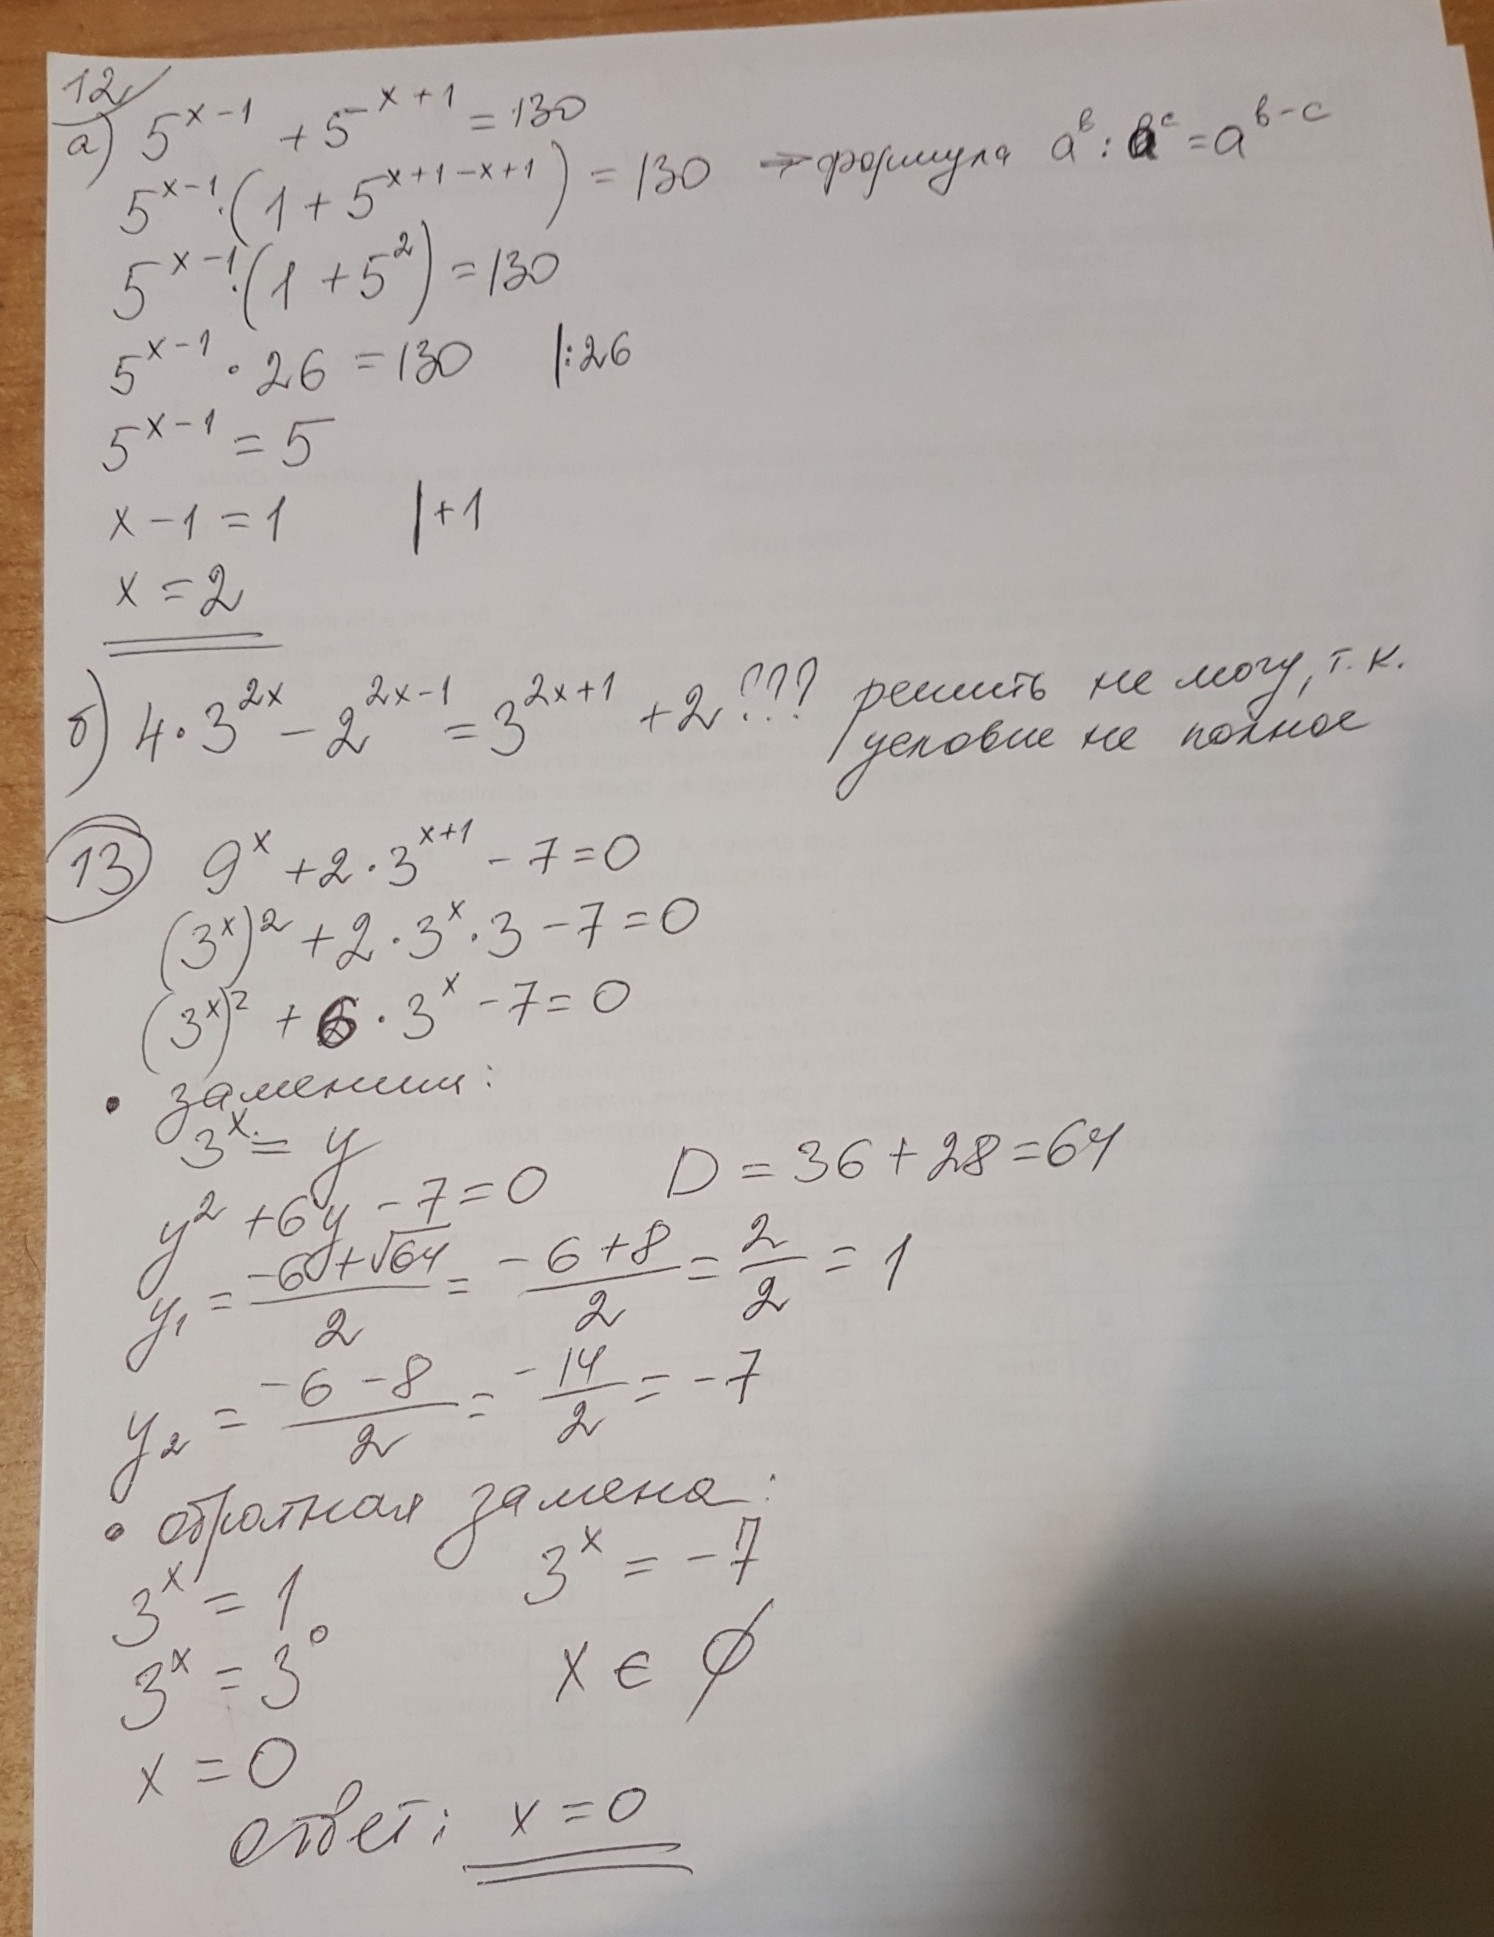 12
а) 5^(x-1) + 5^(x+1) = 130
5^(x-1)·(1 + 5^(x+1-x+1)) = 130 → формула a^b : a^c = a^(b-c)
5^(x-1)·(1 + 5^2) = 130
5^(x-1) · 26 = 130 |:26
5^(x-1) = 5
x - 1 = 1 |+1
x = 2
б) 4·3^(2x) - 2^(2x-1) = 3^(2x+1) + 2^??? решить не могу, т.к.
условие не полное
13 9^x + 2·3^(x+1) - 7 = 0
(3^x)^2 + 2·3^x·3 - 7 = 0
(3^x)^2 + 6·3^x - 7 = 0
• заменим:
3^x = y
y^2 + 6y - 7 = 0 D = 36 + 28 = 64
y₁ = (-6+√64)/2 = (-6+8)/2 = 2/2 = 1
y₂ = (-6-8)/2 = -14/2 = -7
• обратная замена:
3^x = 1 3^x = -7
3^x = 3^0 x ∈ ∅
x = 0
ответ: x = 0